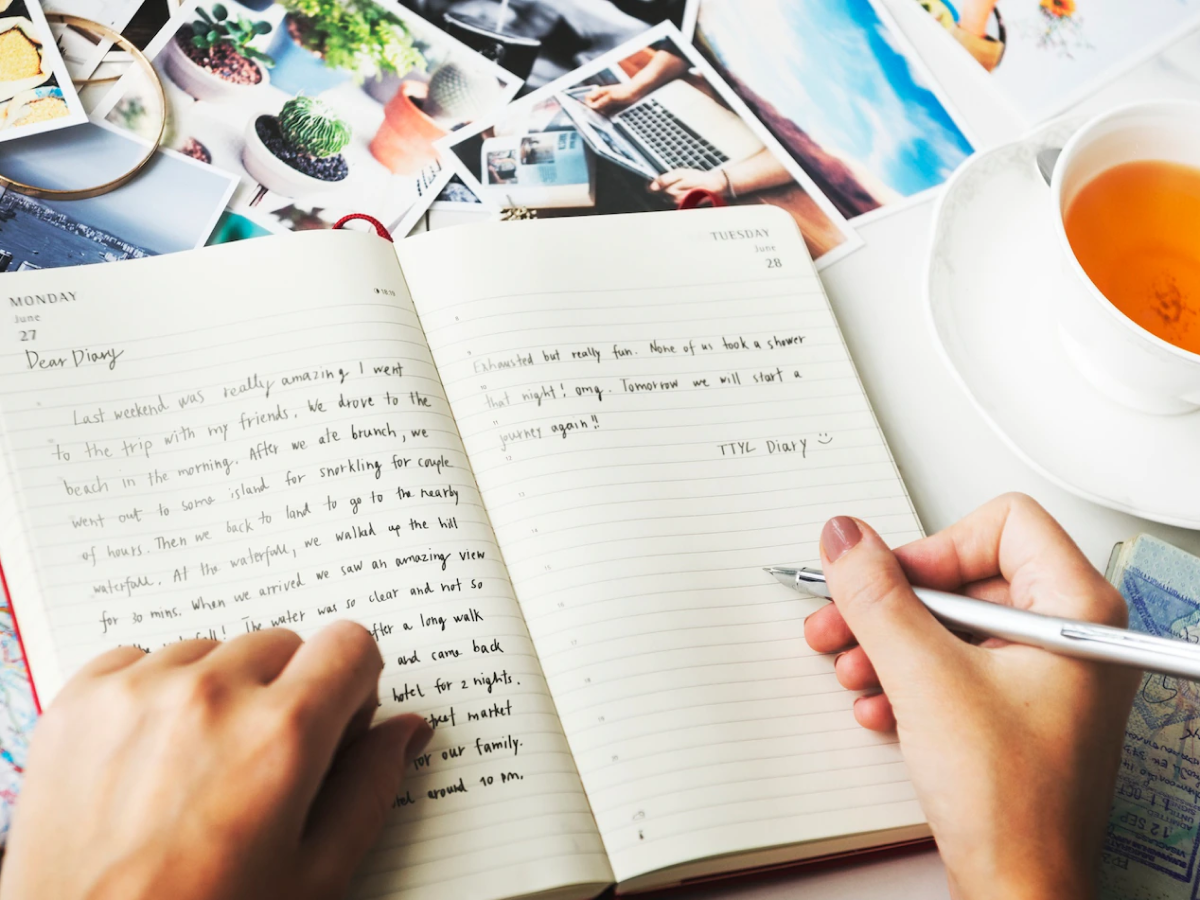 MONDAY
June
27
Dear Diary
Last weekend was really amazing I went
to the trip with my friends. We drove to the
beach in the morning. After we ate brunch, we
went out to some island for snorkling for couple
of hours. Then we back to land to go to the nearby
waterfall. At the waterfall, we walked up the hill
for 30 mins. When we arrived we saw an amazing view
fall! The water was so clear and not so
after a long walk
and came back
hotel for 2 nights.
street market
for our family.
around 10 pm.
TUESDAY
June
28
Exhausted but really fun. None of us took a shower
that night! omg. Tomorrow we will start a
journey again!!
TTYL Diary :)
12 SEP